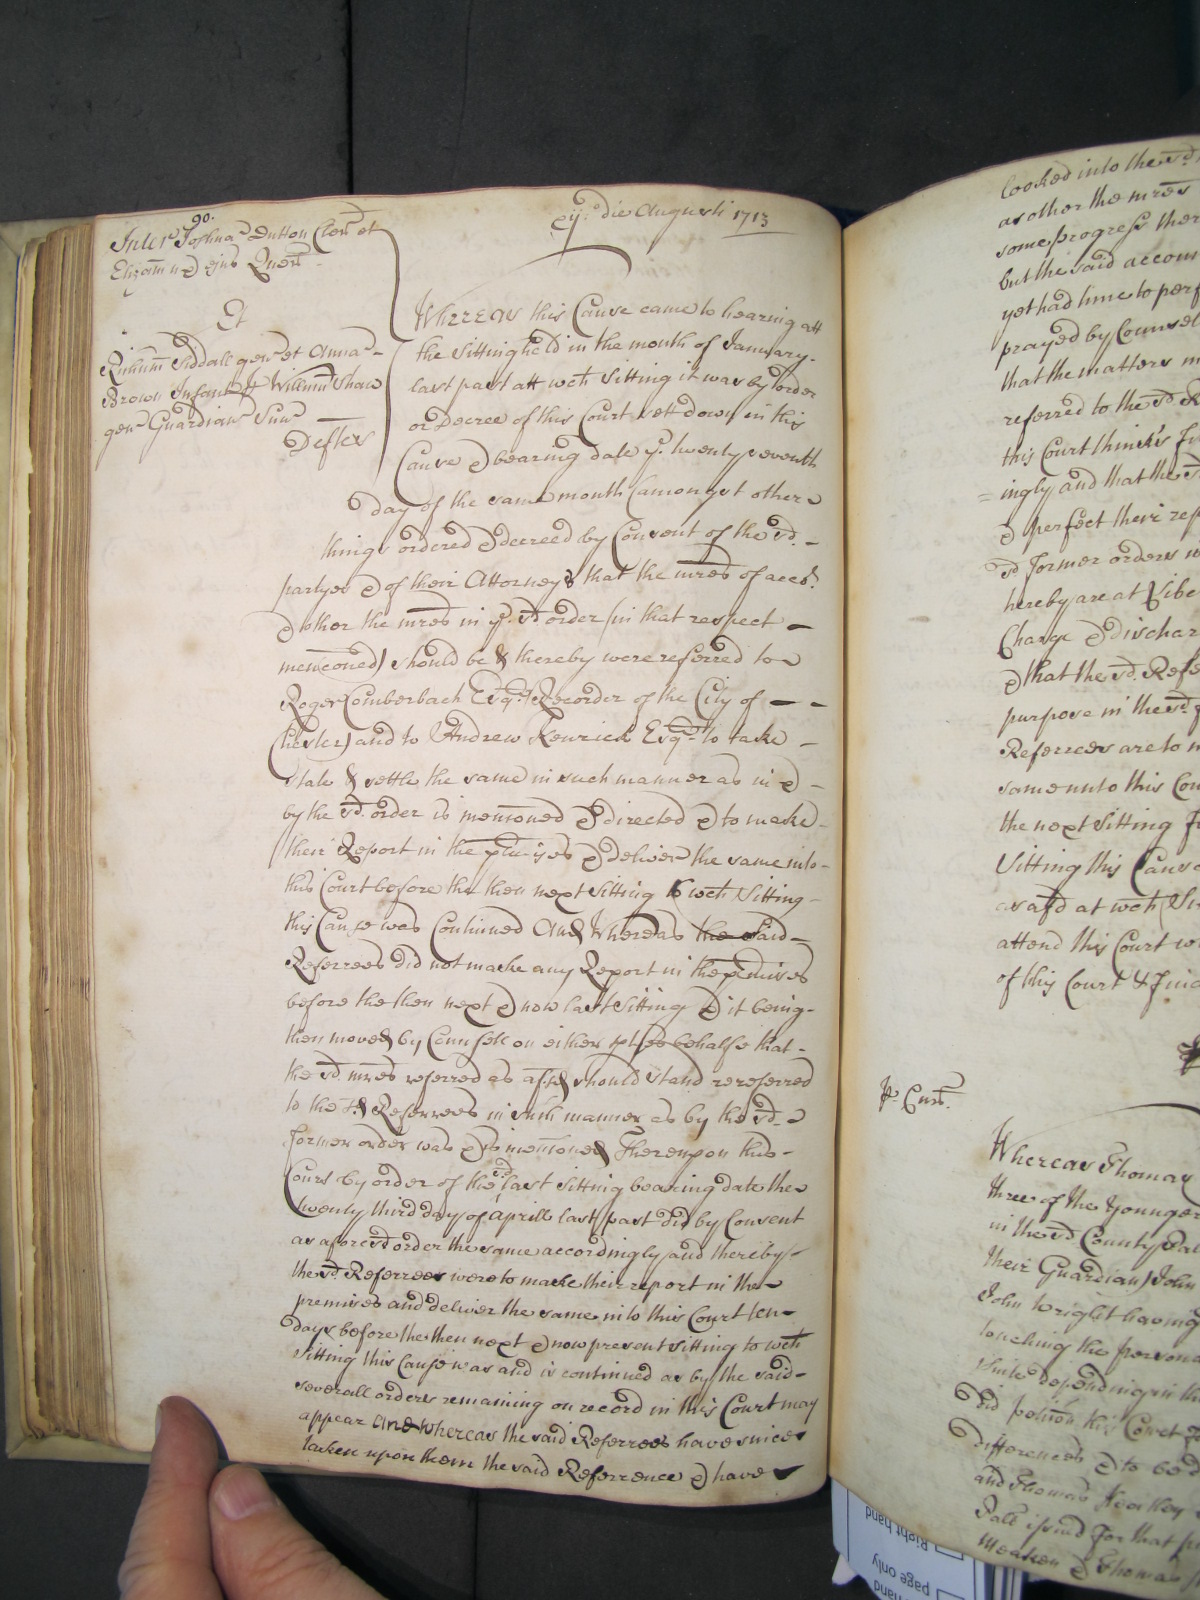 90.
eij.o die Augusti 1713
Inter Joshua Dutton Cler et
Elizam ux ejus Quer
Et
Siddall gen et Anna
Brown Infant Willm Shaw
gen Guardian Suu
Deftes
Whereas this Cause came to hearing att
the Sitting held in the month of January
last past att wch Sitting it was by order
or Decree of this Court set down in this
Cause & bearing date ye twenty seventh
day of the same month (amongst other
things ordered & decreed by Consent of the sd
partyes & of their Attorneys that the mres of acco
& other the mres in ye sd order (in that respect
menconed) should be & thereby were referred to
Roger Comberbach Esqr (Recorder of the City of
Chester) and to Andrew Kenrick Esqr to take
State & settle the same in such manner as in &
by the sd order is menconed & directed & to make
their Report in the & deliver the same into
this Court before the then next Sitting to wch Sitting
this Cause was Continued And Whereas the said
Referrees did not make any Report in the pmises
before the then next & now last Sitting & it being
then moved by Counsell on either ptyes behalfe that
the sd mres referred as afsd should stand rereferred
to the sd Referrees in such manner as by the sd
former order was & is menconed Thereupon this
Court by order of the sd last Sitting bearing date the
twenty third day of Aprill last past did by Consent
as aforesd order the same accordingly and thereby
the sd Referrees were to make their report in the
premises and deliver the same into this Court ten
days before the then next & now present Sitting to wch
Sitting this Cause was and is continued as by the said
severall orders remaining on record in this Court may
appear And whereas the said Referrees have since
taken upon them the said Referrence & have
looked into the sd
as other the mres
some progress ther
but the said accom
yet had time to perf
prayed by Counsel
that the matters m
referred to the sd R
this Court thinks fi
=ingly and that the sd
& perfect their rep
sd former orders w
hereby are at Libe
Charge & dischar
& that the sd Refe
purpose in the sd
Referrees are to m
same unto this Cou
the next Sitting
Sitting this Caus
as afd at wch Si
attend this Court
of this Court &
p Cur.
Whereas Thomas
three of the younger
in the sd County Pal
their Guardian) John
John Wright having
touching the persona
Suite depending in th
Did peticon this Court
Differences & to be
and Thomas
issued for that
& Thomas
Right hand
page only
hand